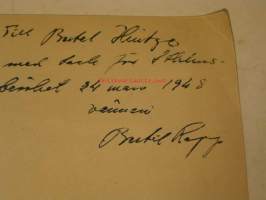 Till Bertel Hintze
med tack för
24 mars 1948
vännen
Bertil Rapp